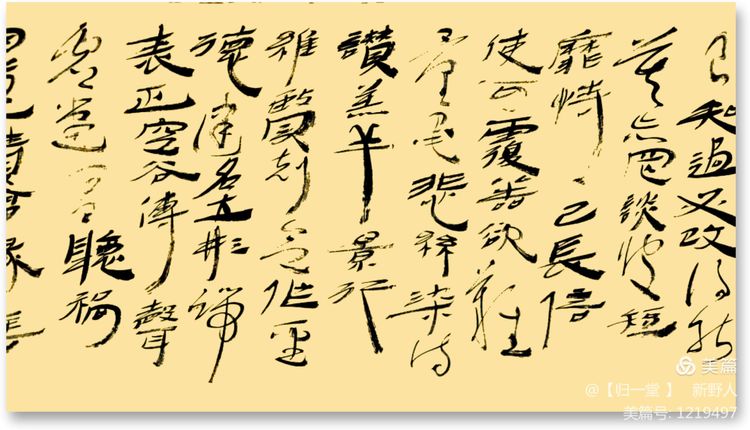 良知過必改得能
莫忘罔談彼短
靡恃己長信
使可覆器欲難
量墨悲絲染詩
讚羔羊景行
維賢剋念作聖
德建名立形端
表正空谷傳聲
虛堂習聽禍
美篇
@【归一堂 】 新野人
美篇号: 1219497